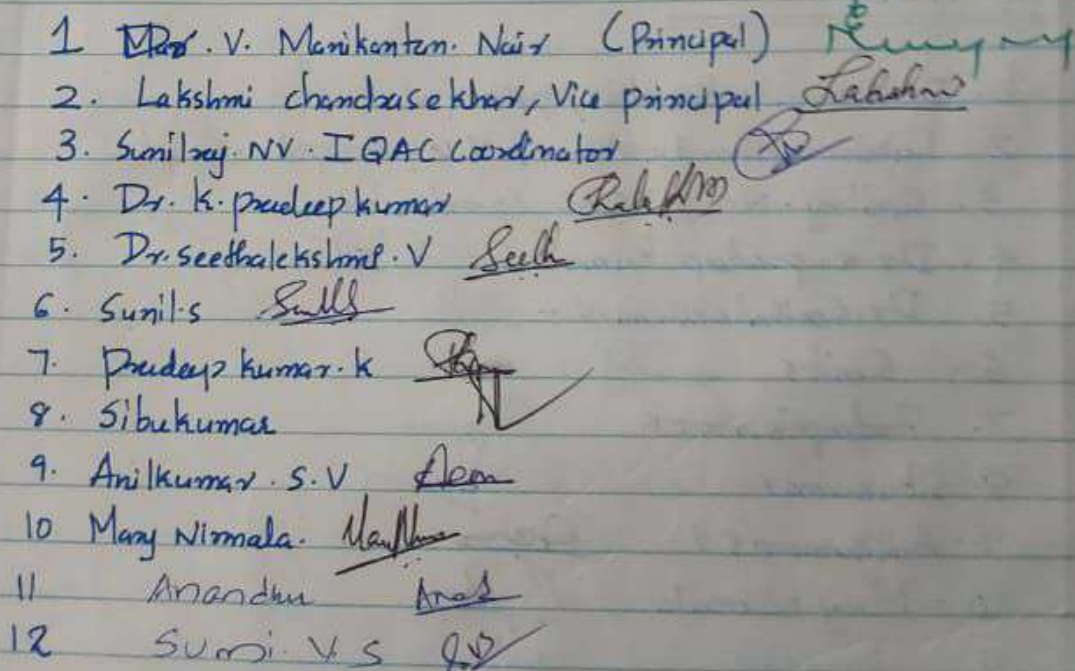 1 V. Manikantan. Nair (Principal)
2. Lakshmi chandrasekhar, Vice principal Lakshmi
3. Sunilraj. NV. IQAC Coordinator
4. Dr. K. pradeep kumar
5. Dr. seethalekshmi. V Seeth
6. Sunil.s
7. Pradeep kumar. k
8. Sibukumar
9. Anilkumar. S. V
10 Mary Nirmala.
11 Anandhu
12 Sumi. V. S